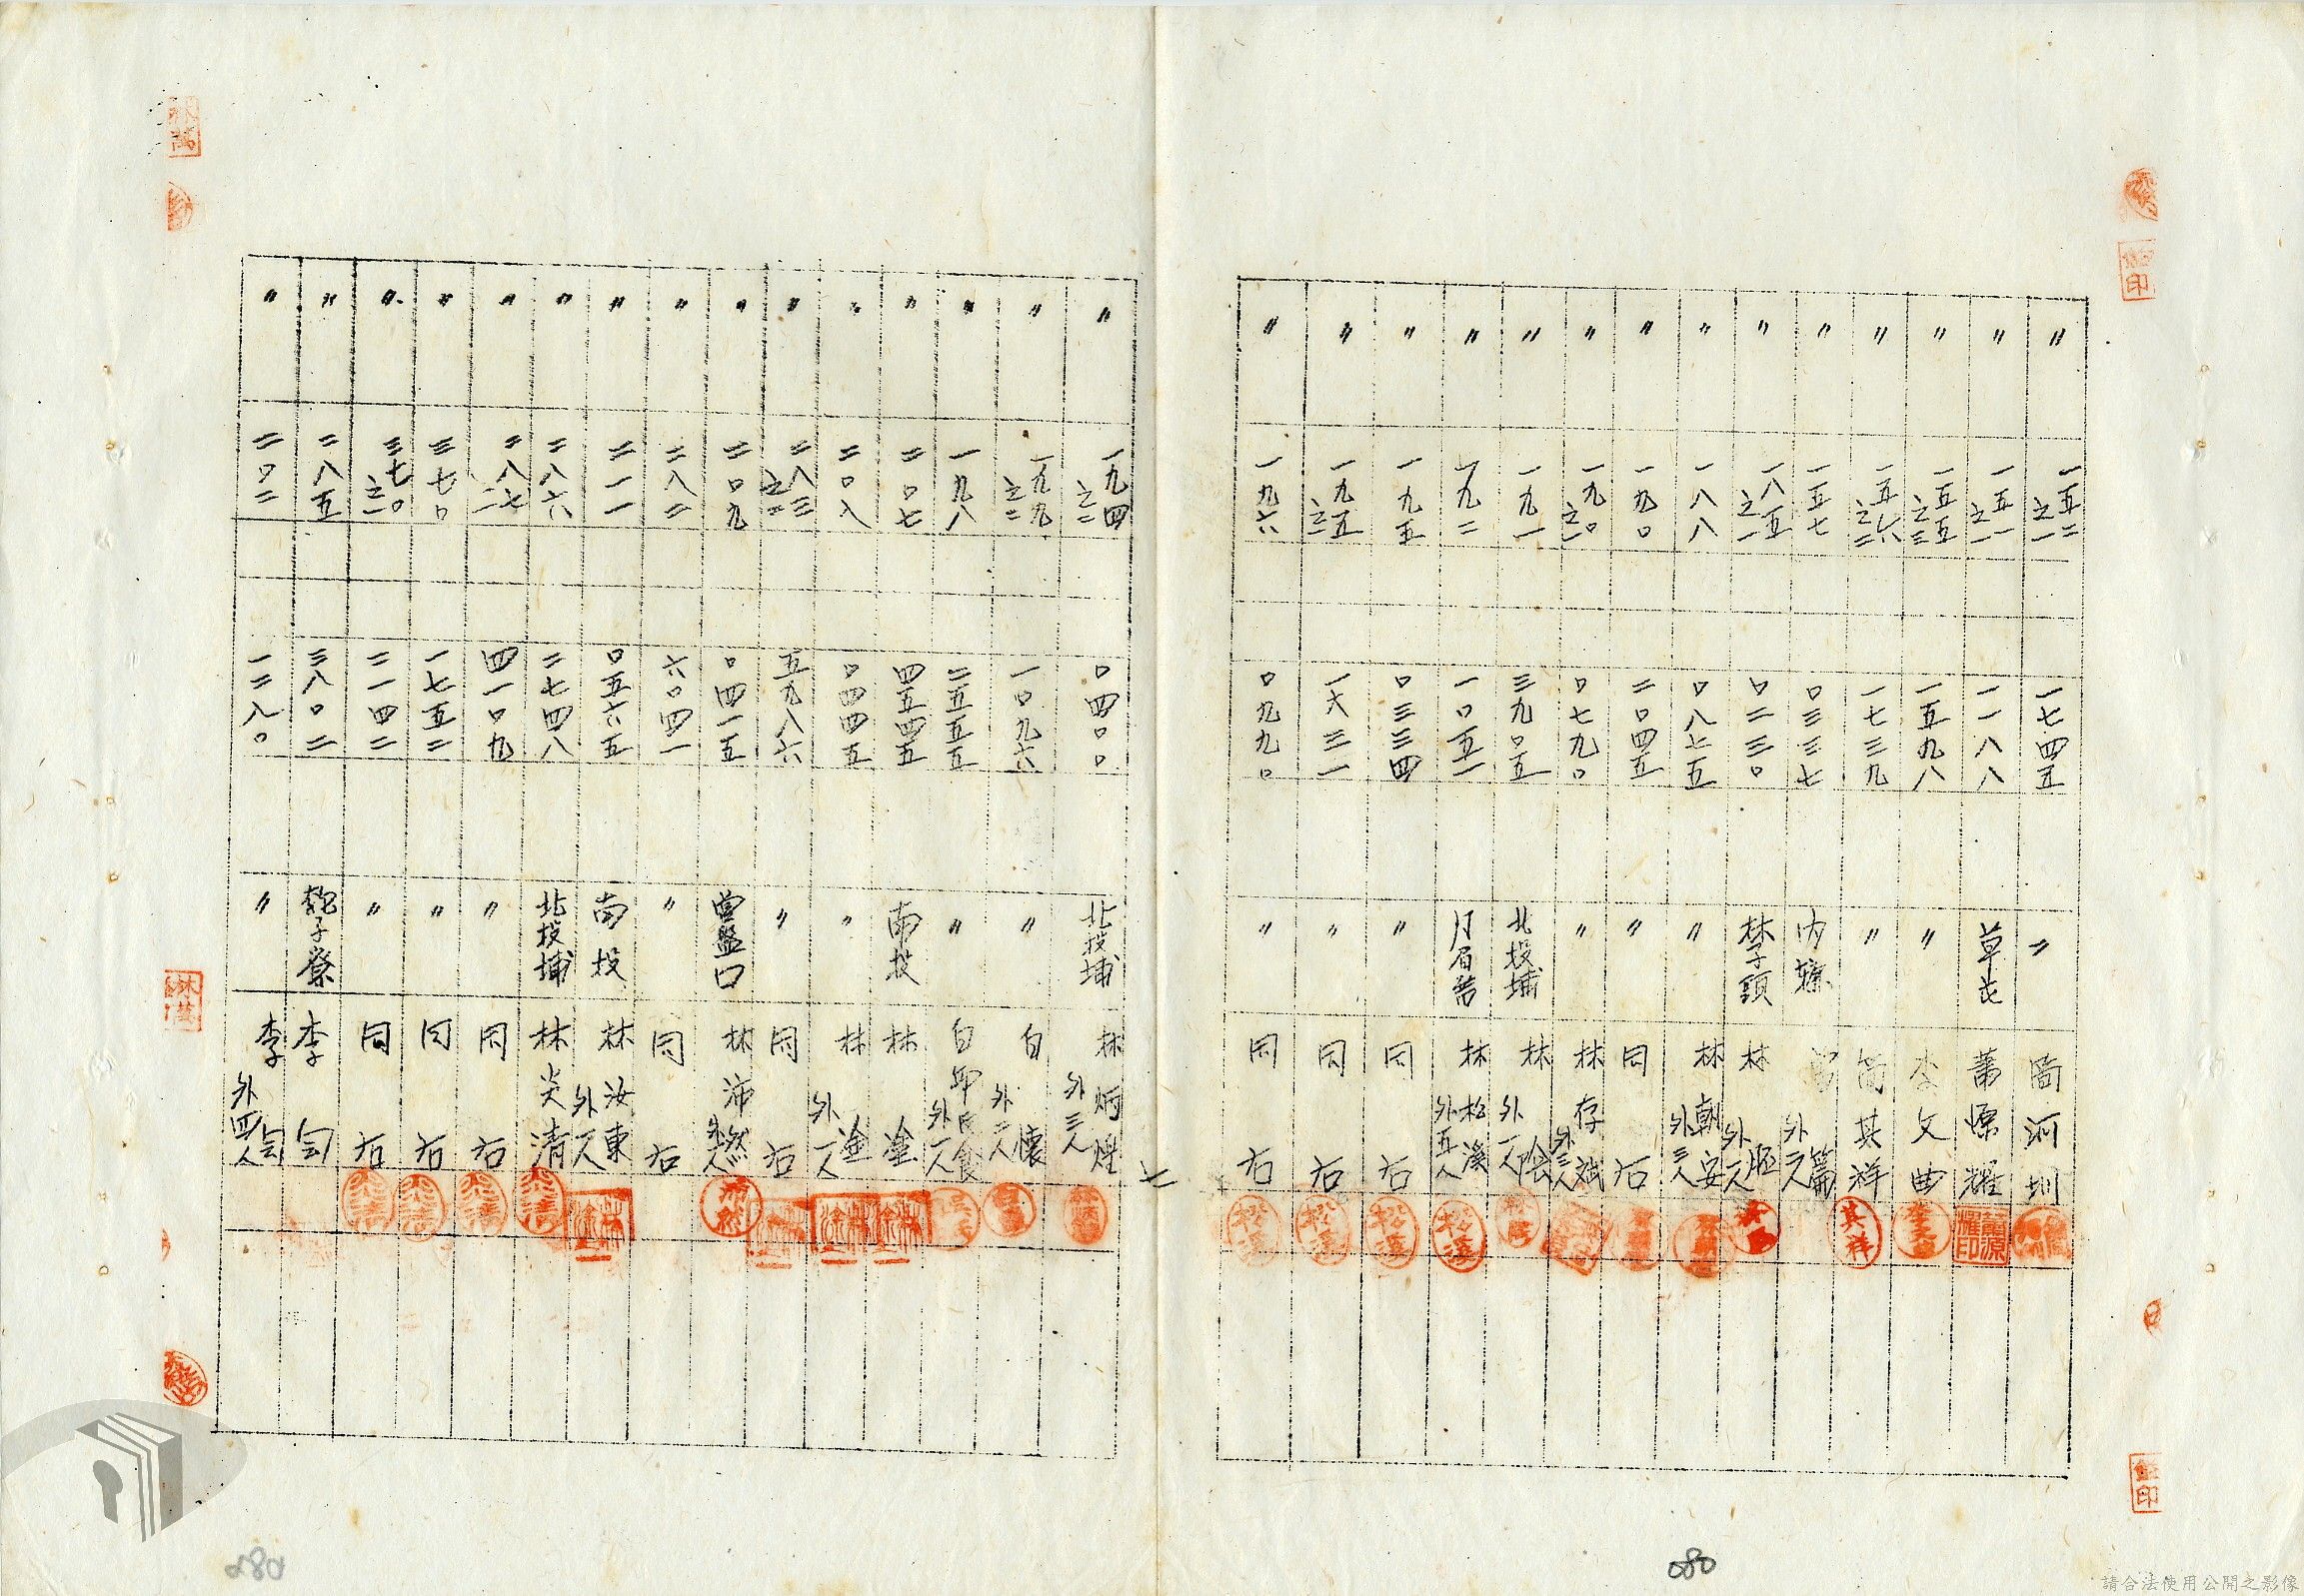 〃 一五二之一 一七四五 〃 河圳
〃 一五一之一 一一八八 草屯 蕭源耀 蕭源耀印
〃 一五五之三 一五九八 〃 李文曲
〃 一五六之二 一七三九 〃 簡其祥 其祥
〃 一五七 〇三三七 內轆 外二人
〃 一八五之一 〇二三〇 林子頭 林 外一人
〃 一八八 〇八七五 〃 林朝安 外三人
〃 一九〇 二〇四五 〃 同右
〃 一九〇之一 〇七九〇 〃 林存斌 外三人
〃 一九一 三九〇五 北投埔 林陰 外一人
〃 一九二 一〇五一 月眉厝 林松溪 外五人 松溪
〃 一九五 〇三三四 〃 同右 松溪
〃 一九五之二 一六三一 〃 同右 松溪
〃 一九六 〇九九〇 〃 同右 松溪
七
〃 一九四之二 〇四〇〇 北投埔 林炳煌 外三人
〃 一九九之二 一〇九六 〃 白懷 外二人
〃 一九八 二五五五 〃 白邱氏食 外一人
〃 二〇七 四五四五 南投 林塗 林塗
〃 二〇八 〇四四五 〃 林塗 外一人 林塗
〃 二八三之二 五九八六 〃 同右 林塗
〃 二〇九 〇四一五 營盤口 林沛燃 外一人 沛然
〃 二八二 六〇四一 〃 同右
〃 二一一 〇五六五 南投 林汝東 外一人 林塗
〃 二八六 二七四八 北投埔 林炎清 炎清
〃 二八七 四一〇九 〃 同右 炎清
〃 三七〇 一七五二 〃 同右 炎清
〃 三七〇之一 二一四二 〃 同右 炎清
〃 二八五 三八〇二 李
〃 二〇二 一二八〇 〃 李 外四人
080
請合法使用公開之影像